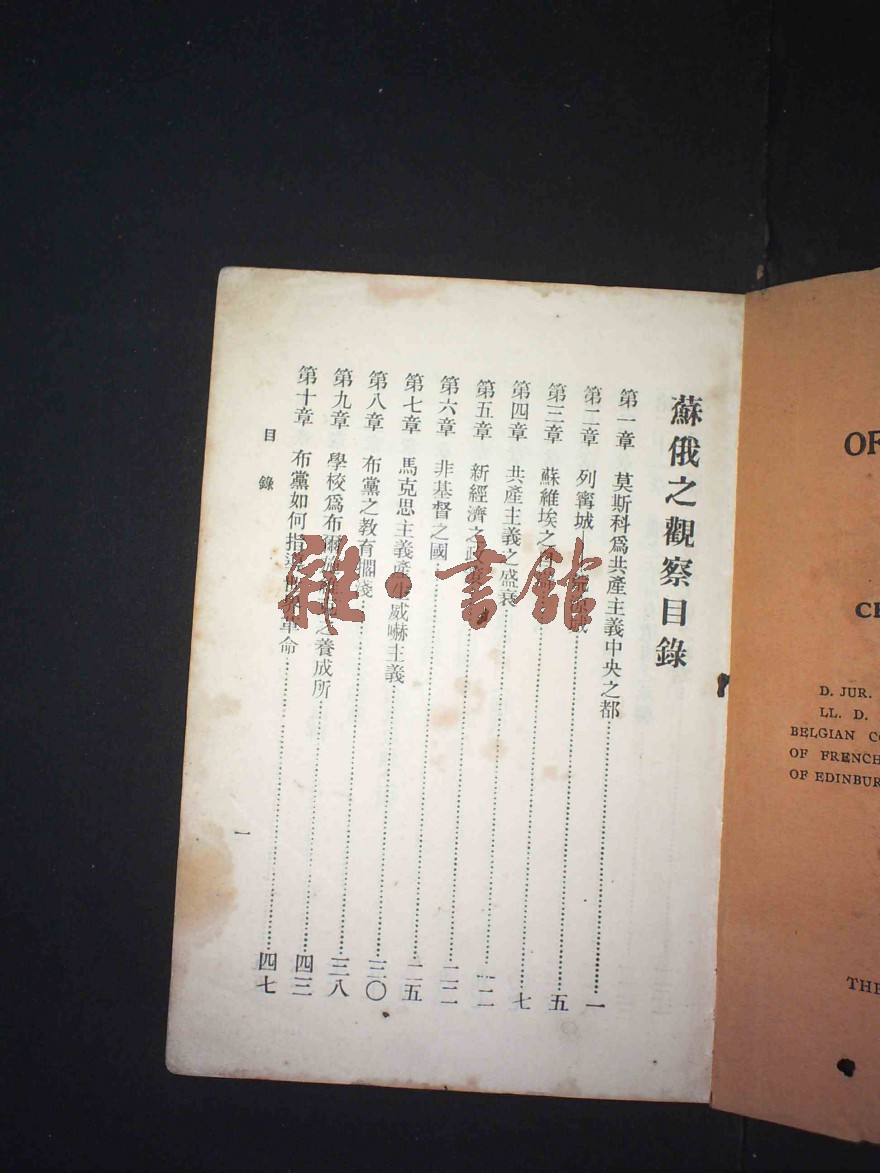 蘇俄之觀察目錄
第一章 莫斯科爲共產主義中央之都……一
第二章 列寧城—城……五
第三章 蘇維埃之……七
第四章 共產主義之盛衰……一二
第五章 新經濟之政……二二
第六章 非基督之國……二五
第七章 馬克思主義產生威嚇主義……三〇
第八章 布黨之教育閣淺……三八
第九章 學校爲布爾之養成所……四三
第十章 布黨如何指革命……四七
目錄
一
雜·書館
OF
D. JUR.
LL. D.
BELGIAN
OF FRENCH
OF EDINBUR
THE